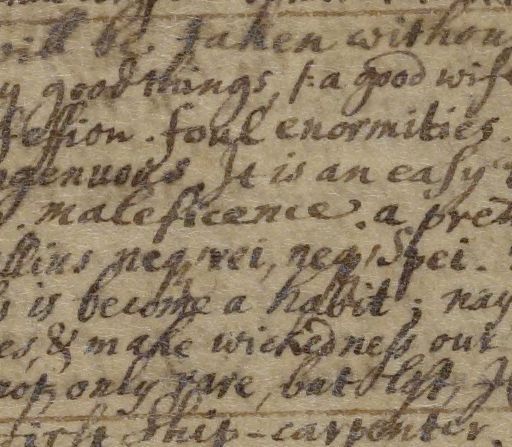 will be. taken withou
y good things, /: a good wif
ſeſſion. foul enormities.
ngenuous It is an eaſy
. maleficence. a pret
llius neq, rei, neq, Spei.
s is become a habit; nay
es, & make wickedneſs our
not only rare, but loſt,
firſt Ship-carpenter.